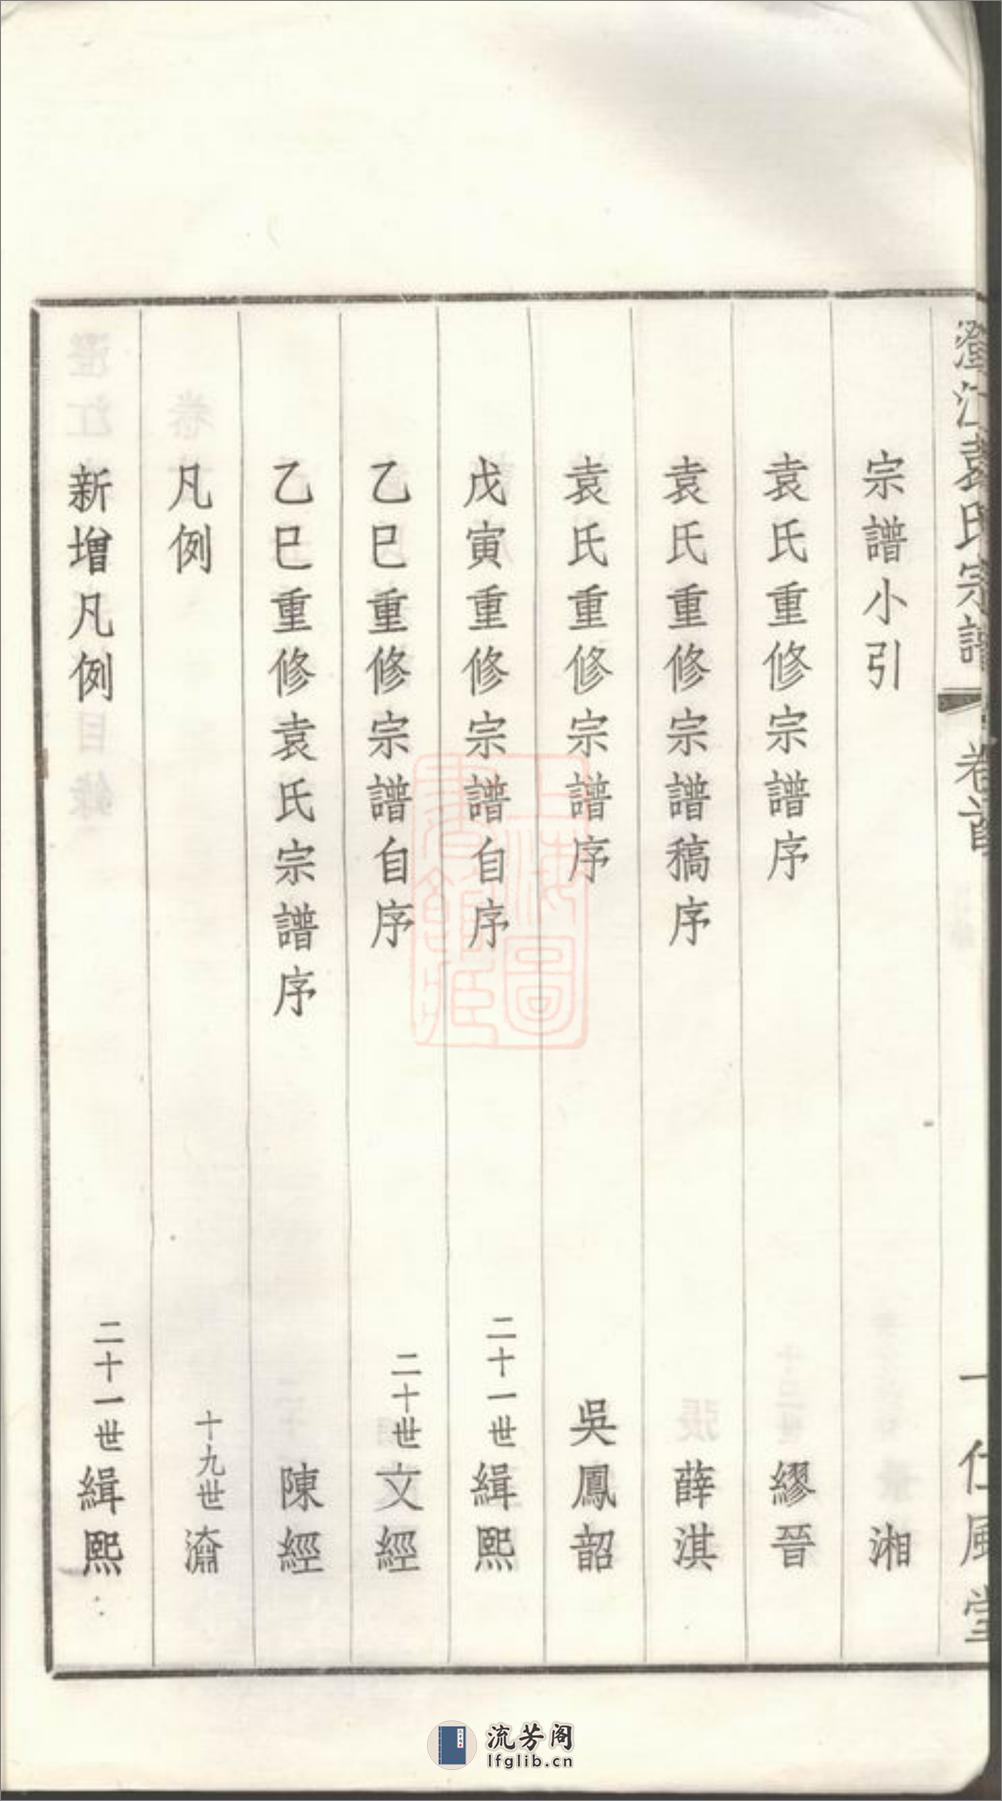 澄江袁氏宗譜
卷首
一
仁風堂
宗譜小引 湘
袁氏重修宗譜序 繆晉
袁氏重修宗譜稿序 薛淇
袁氏重修宗譜序 吳鳳韶
戊寅重修宗譜自序 二十一世緝熙
乙巳重修宗譜自序 二十世文經
乙巳重修袁氏宗譜序 陳經
凡例 十九世瀹
新增凡例 二十一世緝熙
上海圖書館藏
流芳阁
lfglib.cn